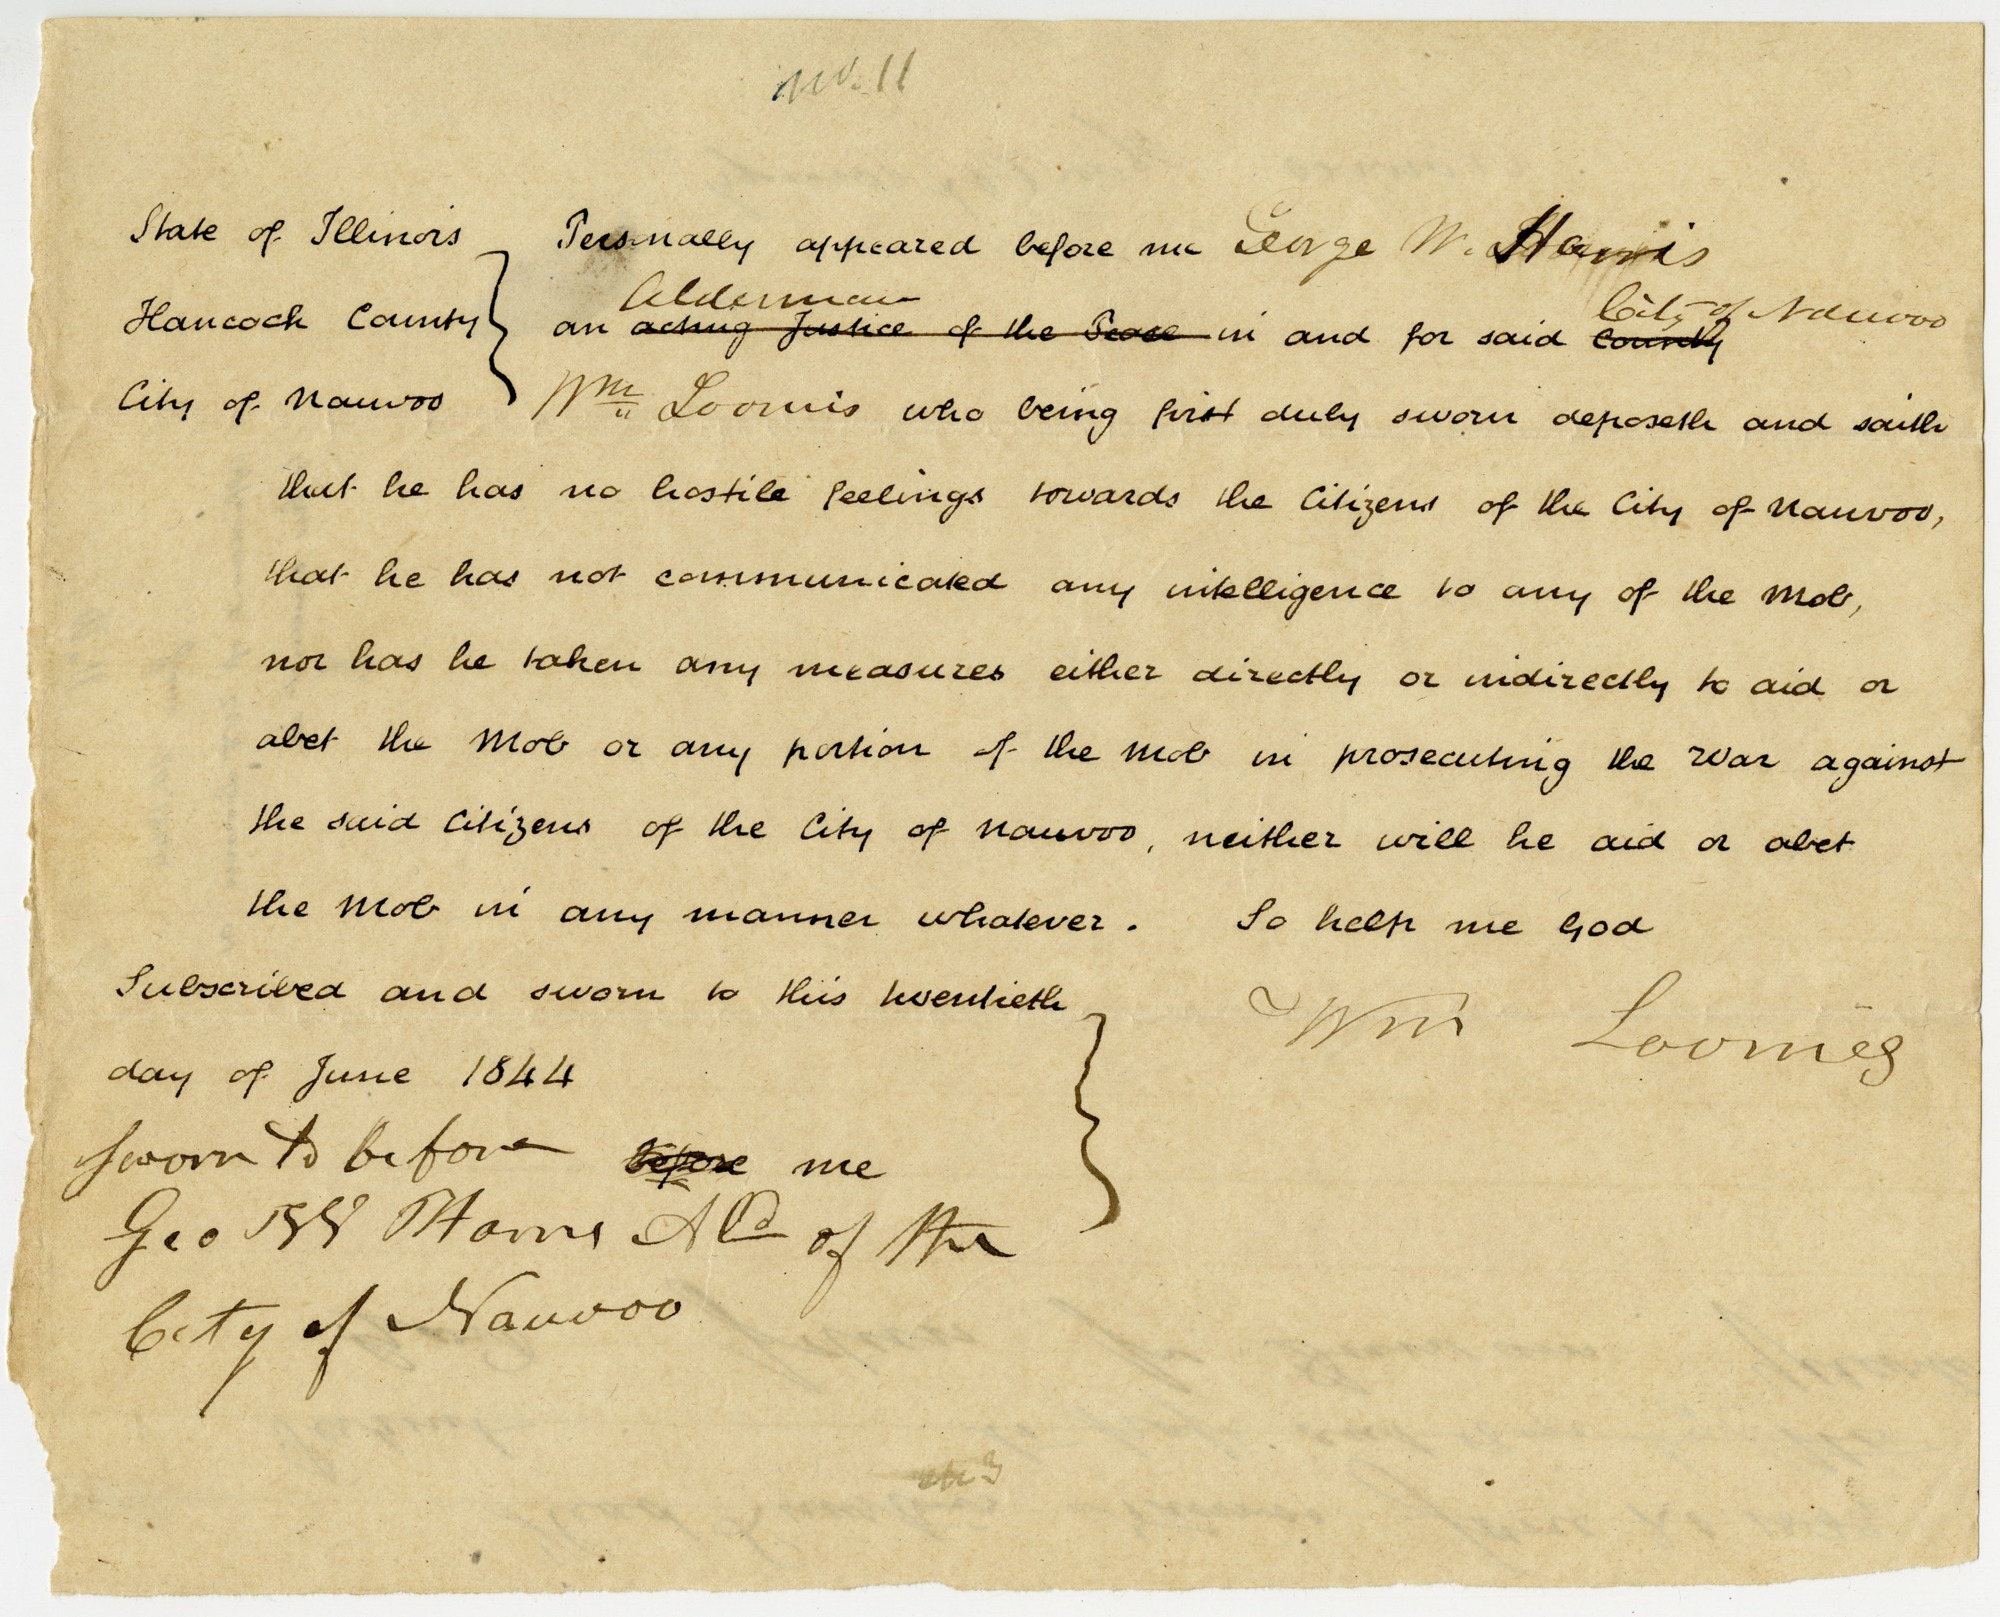 No. 11
State of Illinois } Personally appeared before me George W. Harris
Alderman City of Nauvoo
Hancock County } an acting Justice of the Peace in and for said County
City of Nauvoo } Wm Loomis who being first duly sworn deposeth and saith
that he has no hostile feelings towards the Citizens of the City of Nauvoo,
that he has not communicated any intelligence to any of the Mob,
nor has he taken any measures either directly or indirectly to aid or
abet the Mob or any portion of the Mob in prosecuting the War against
the said Citizens of the City of Nauvoo, neither will he aid or abet
the Mob in any manner whatever. So help me God
Subscribed and sworn to this twentieth
Wm Loomis
day of June 1844
sworn to before before me
Geo W Harris Ald of the
City of Nauvoo